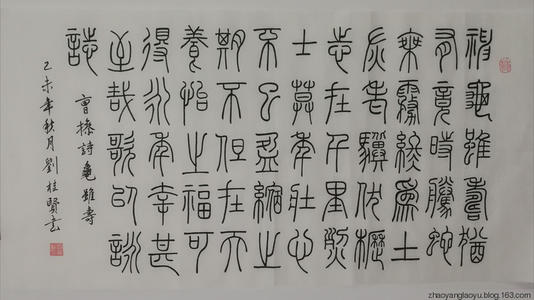 神龜雖壽猶
有竟時騰蛇
乘霧終爲土
灰老驥伏櫪
志在千里烈
士莫年壯心
不已盈縮之
期不但在天
養怡之福可
得永年幸甚
至哉歌以詠
誌
曹操詩龜雖壽
乙未年秋月劉桂賢書
zhaoyanglaoyu.blog.163.com